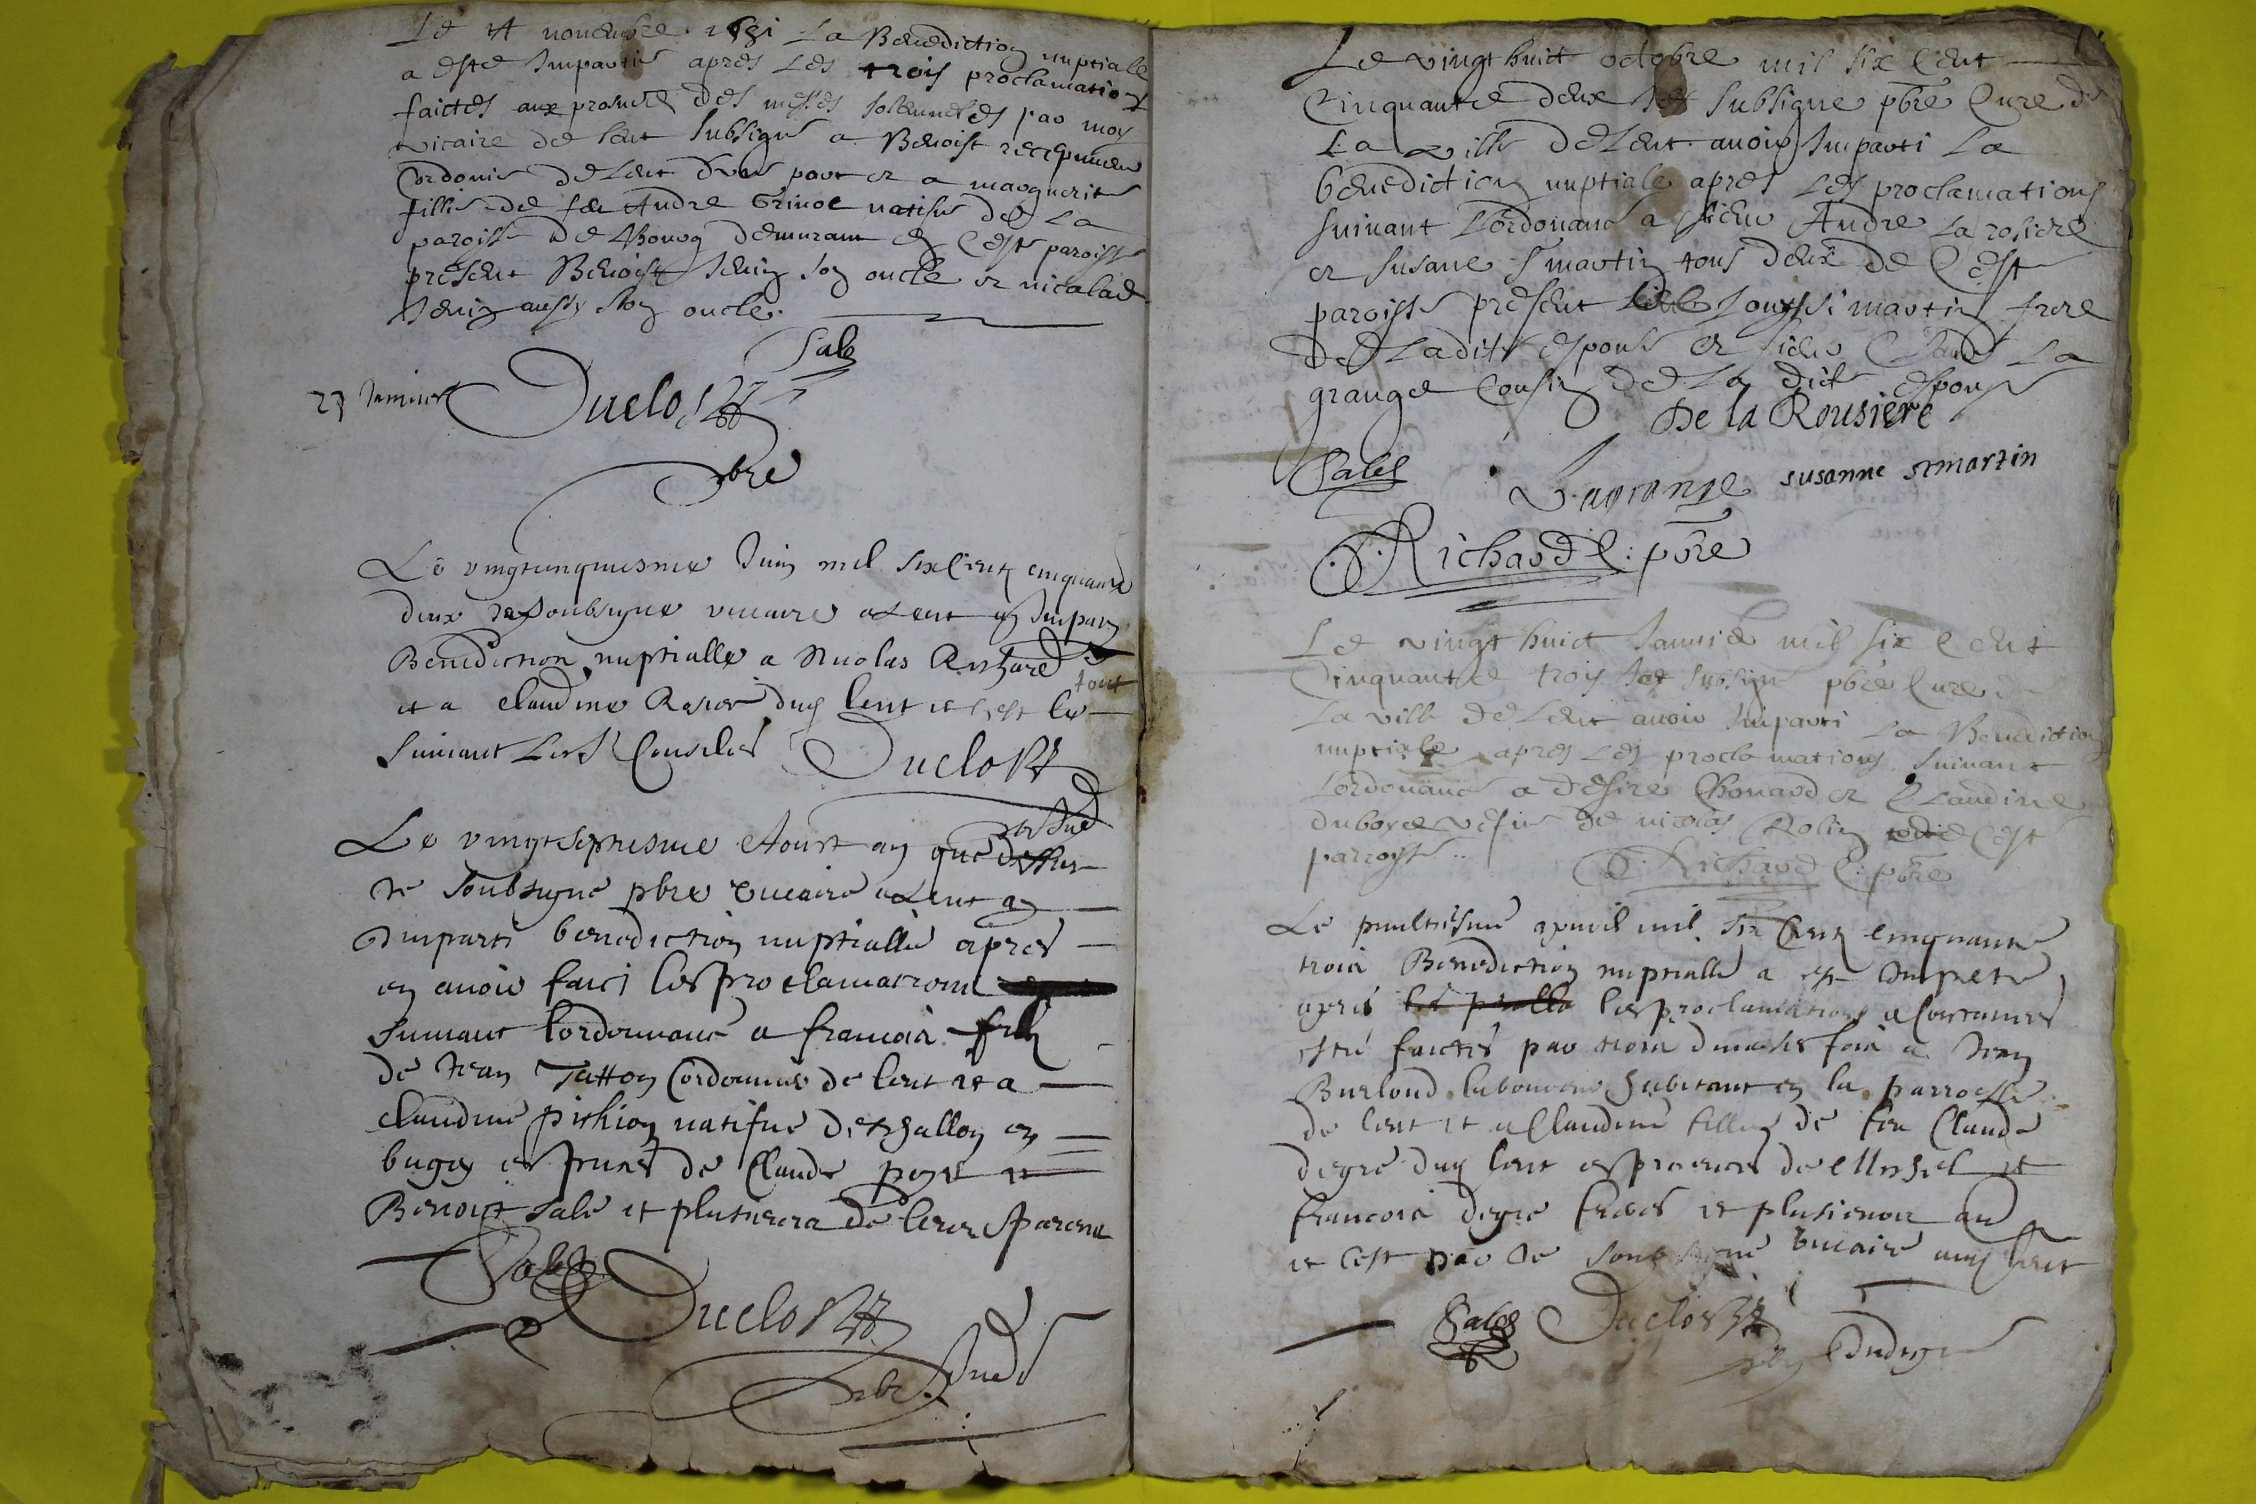 Le 14 novembre 1651 La Benediction nuptiale
a este Impartie apres Les trois proclamations
faictes aux prosnes des messes solemneles par moy
vicaire de lent subsigne a Benoist
Cordonie de Lent d'une part et a marguerite
fillie de feu Andre Grinoe natifve de La
paroisse de Bourg demurant en Ceste paroisse
present Benoist Jenin son oncle et nicolas
Jenin aussy son oncle.
Sale
23 Janvier Duclos
pbre
Le vingt cinquiesme Juin mil six Cent cinquante
deux Je soubsigne vicaire a Lent ay Imparty
Benediction nuptialle a Nicolas
tout
et a claudine duy lent et cest le
suivant Les Conciles Duclos
Le vingt septiesme Aoust an que dessus
Je soubsigne pbre vicaire a Lent ay
Imparti benediction nuptialle apres
en avoir faict les proclamations
suivant l'ordonnance a francois filz
de Jean Tatton Cordonnier de lent et a
claudine pithion natifve de challon en
bugey es pnces de Claude et
Benoict Sale et plusieurs de leurs parens
Sales
Duclos
pbre
Le vingt huict octobre mil six Cent
Cinquante deux Je subsigne pbre Cure de
La ville de Lent avoir Imparti La
benediction nuptiale apres Les proclamations
suivant L'ordonance a sieur Andre La rosiere
et susane St martin tous deux de Ceste
paroisse present Louys St martin frere
de La dite espouse et sieur Claude La
grange Cousin de La dite espouse
De la Rousiere
Sales
Lagrange susanne st martin
Richard C: pbre
Le vingt huict Janvier mil six Cent
Cinquante trois Je subsigne pbre Cure de
La ville de Lent avoir Imparti La Benediction
nuptiale apres Les proclamations suivant
L'ordonance a desire Chonard et Claudine
dubore vefve de nicolas Rolin de Ceste
parroisse
Richard C: pbre
Le penultiesme apvril mil six Cent cinquante
trois Benediction nuptialle a este Impetre
apres les proclamations a Coustumes
estre faictes par trois dimanches fois a Jean
Burlond laboureur habitant en la parroisse
de lent et a Claudine fillie de feu Claude
degre duy lent es presences de Michel et
francois degre freres et plusieurs au
et cest par Je soubsigne vicaire auy lent
Sales Duclos